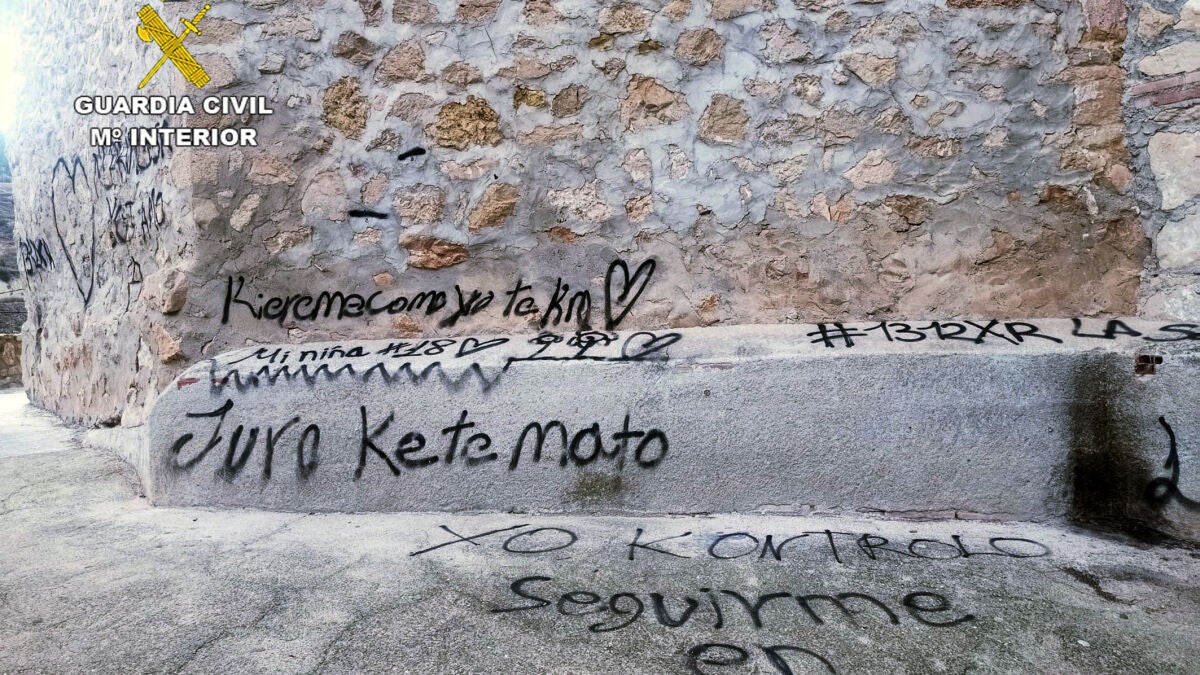 GUARDIA CIVIL
Mº INTERIOR
KieremecomoYo te km
Mi niña #18
#1312XR LA
Juro Ke te mato
YO KONTROLO
Seguirme
en